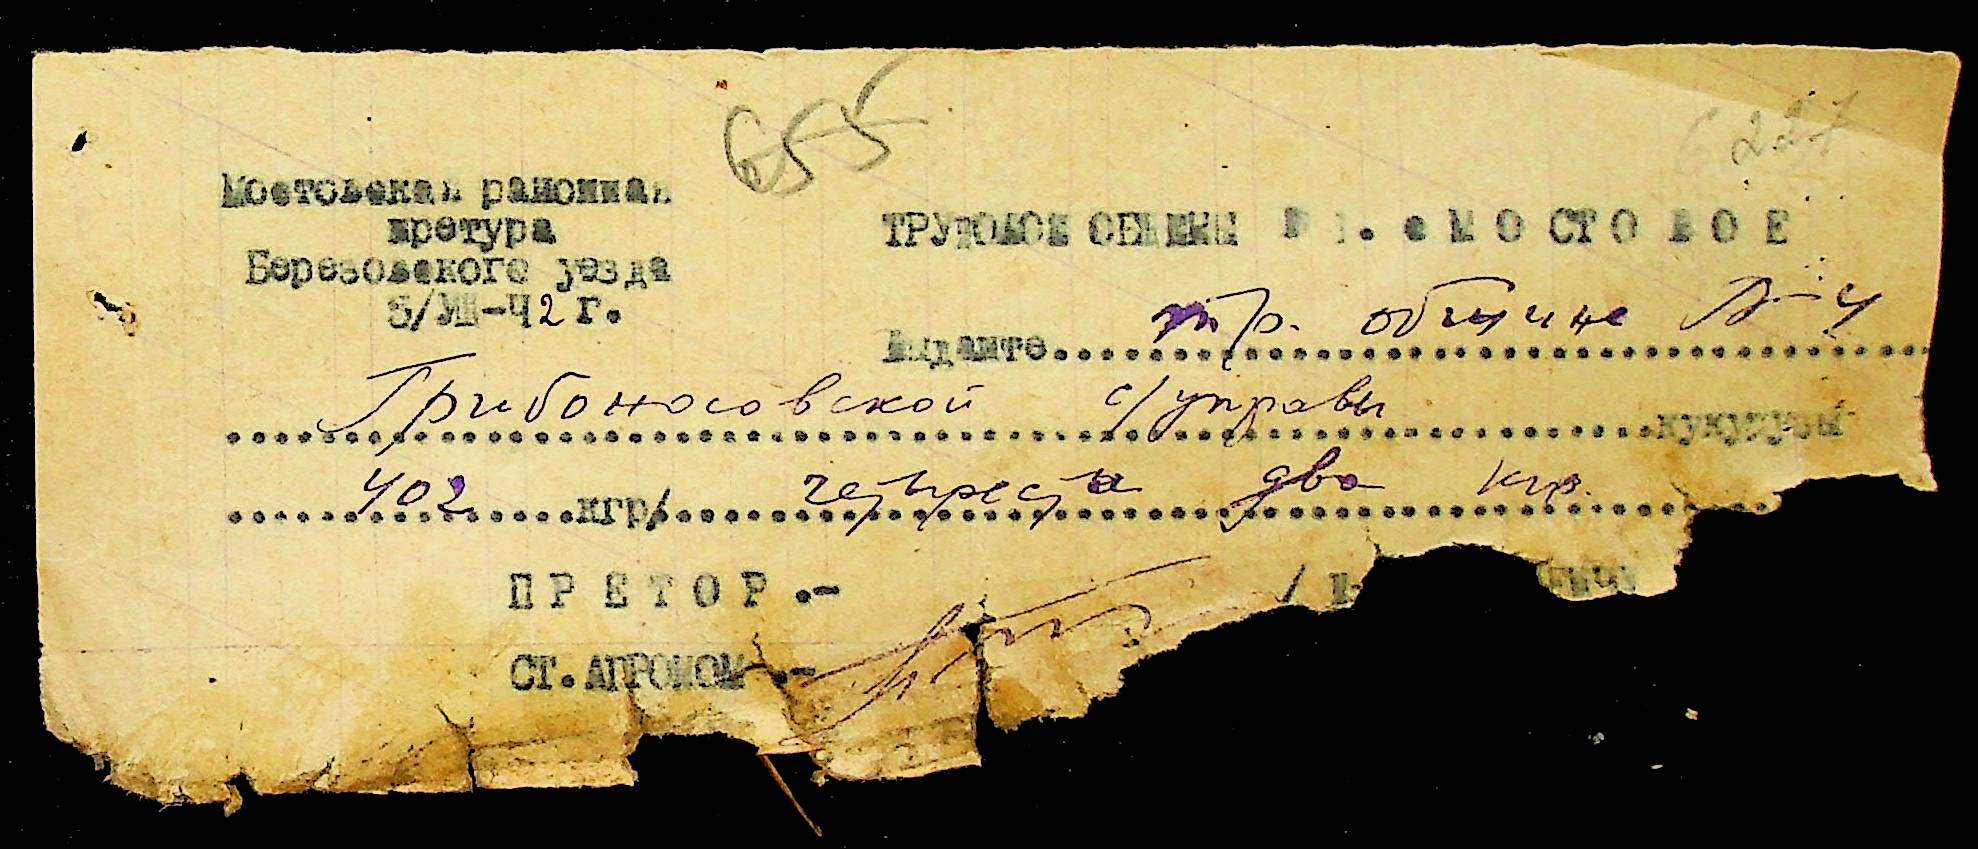 655
227
Мостовская районная
претура
Березовского уезда
5/VIII-42 г.
ТРУДОВОЙ ОБЩИНЫ с. МОСТОВОЕ
Выдайте тр. общине
Грибоносовской с/управы кукурузы
402 кгр/ четыреста два кгр.
ПРЕТОР.-
СТ. АГРОНОМ.-